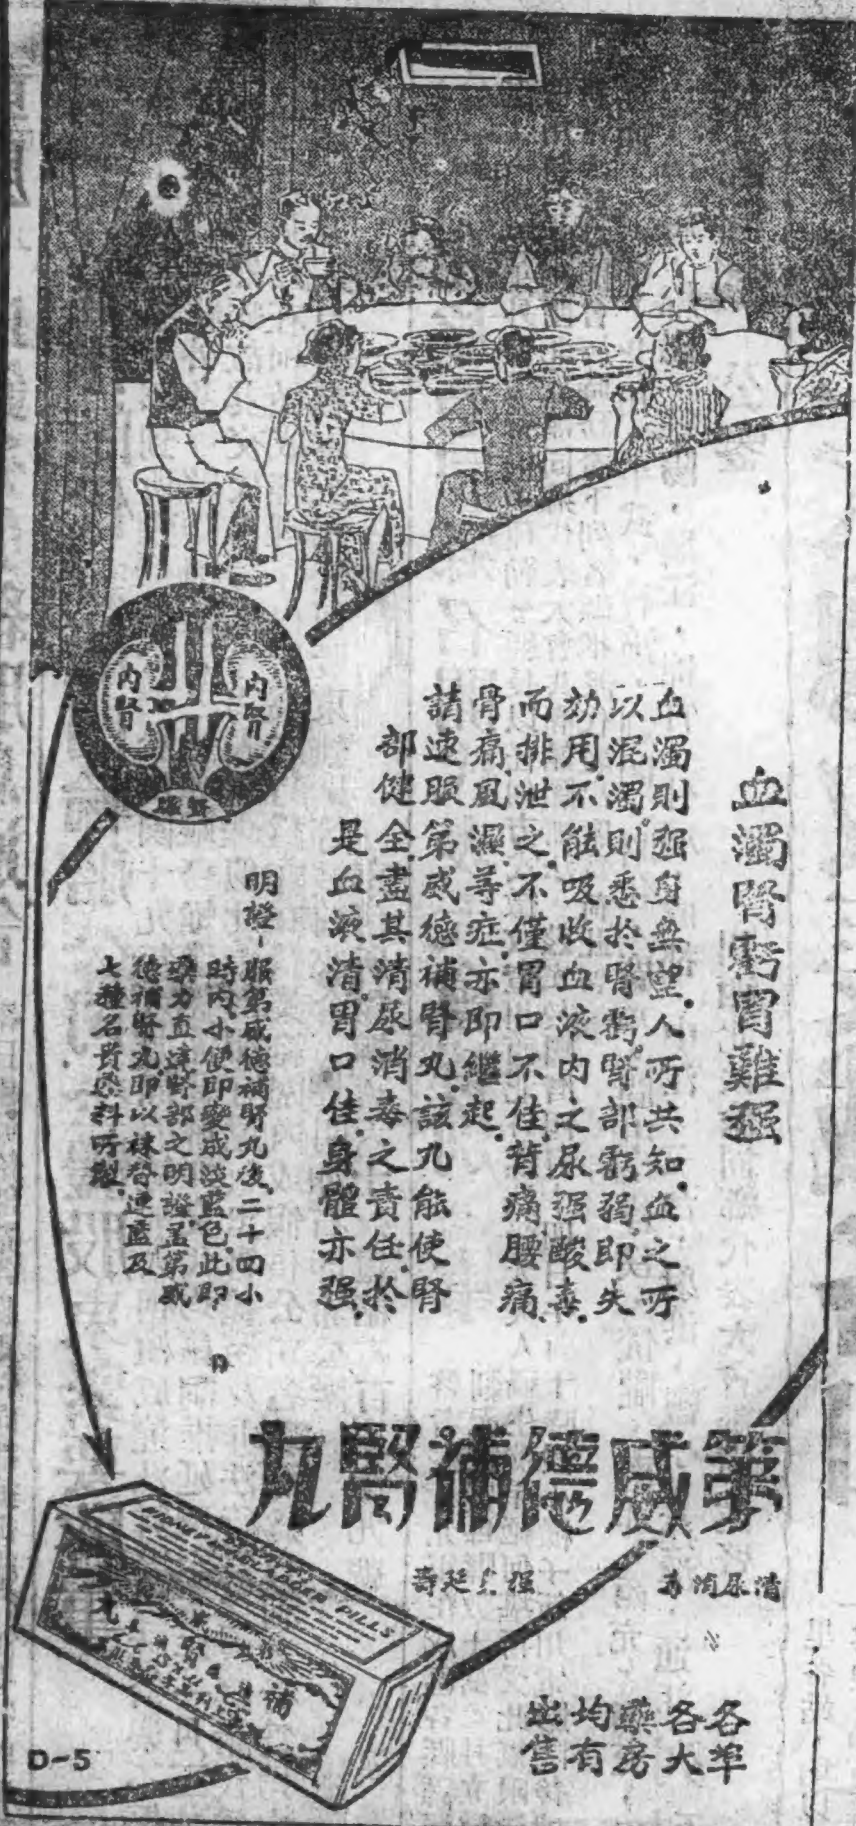 血濁腎虧胃難強
血濁則强身無望.人所共知.血之所
以混濁.則悉於腎虧.腎部虧弱.即失
効用.不能吸收血液內之尿强酸毒.
而排泄之.不僅胃口不佳.背痛.腰痛.
骨痛.風濕.等症.亦即繼起.
請速服第威德補腎丸.該丸能使腎
部健全.盡其清尿消毒之責任.於
是血液清.胃口佳.身體亦强.
明證-服第威德補腎丸後.二十四小
時內.小便即變成淡藍色.此即
藥力直達腎部之明證.盖第威
德補腎丸.即以
七種名貴藥料所製.
內腎
內腎
第威德補腎丸
清尿消毒
延壽
KIDNEY AND BLADDER PILLS
補
丸
各埠
各大
藥房
均有
出售
D-5